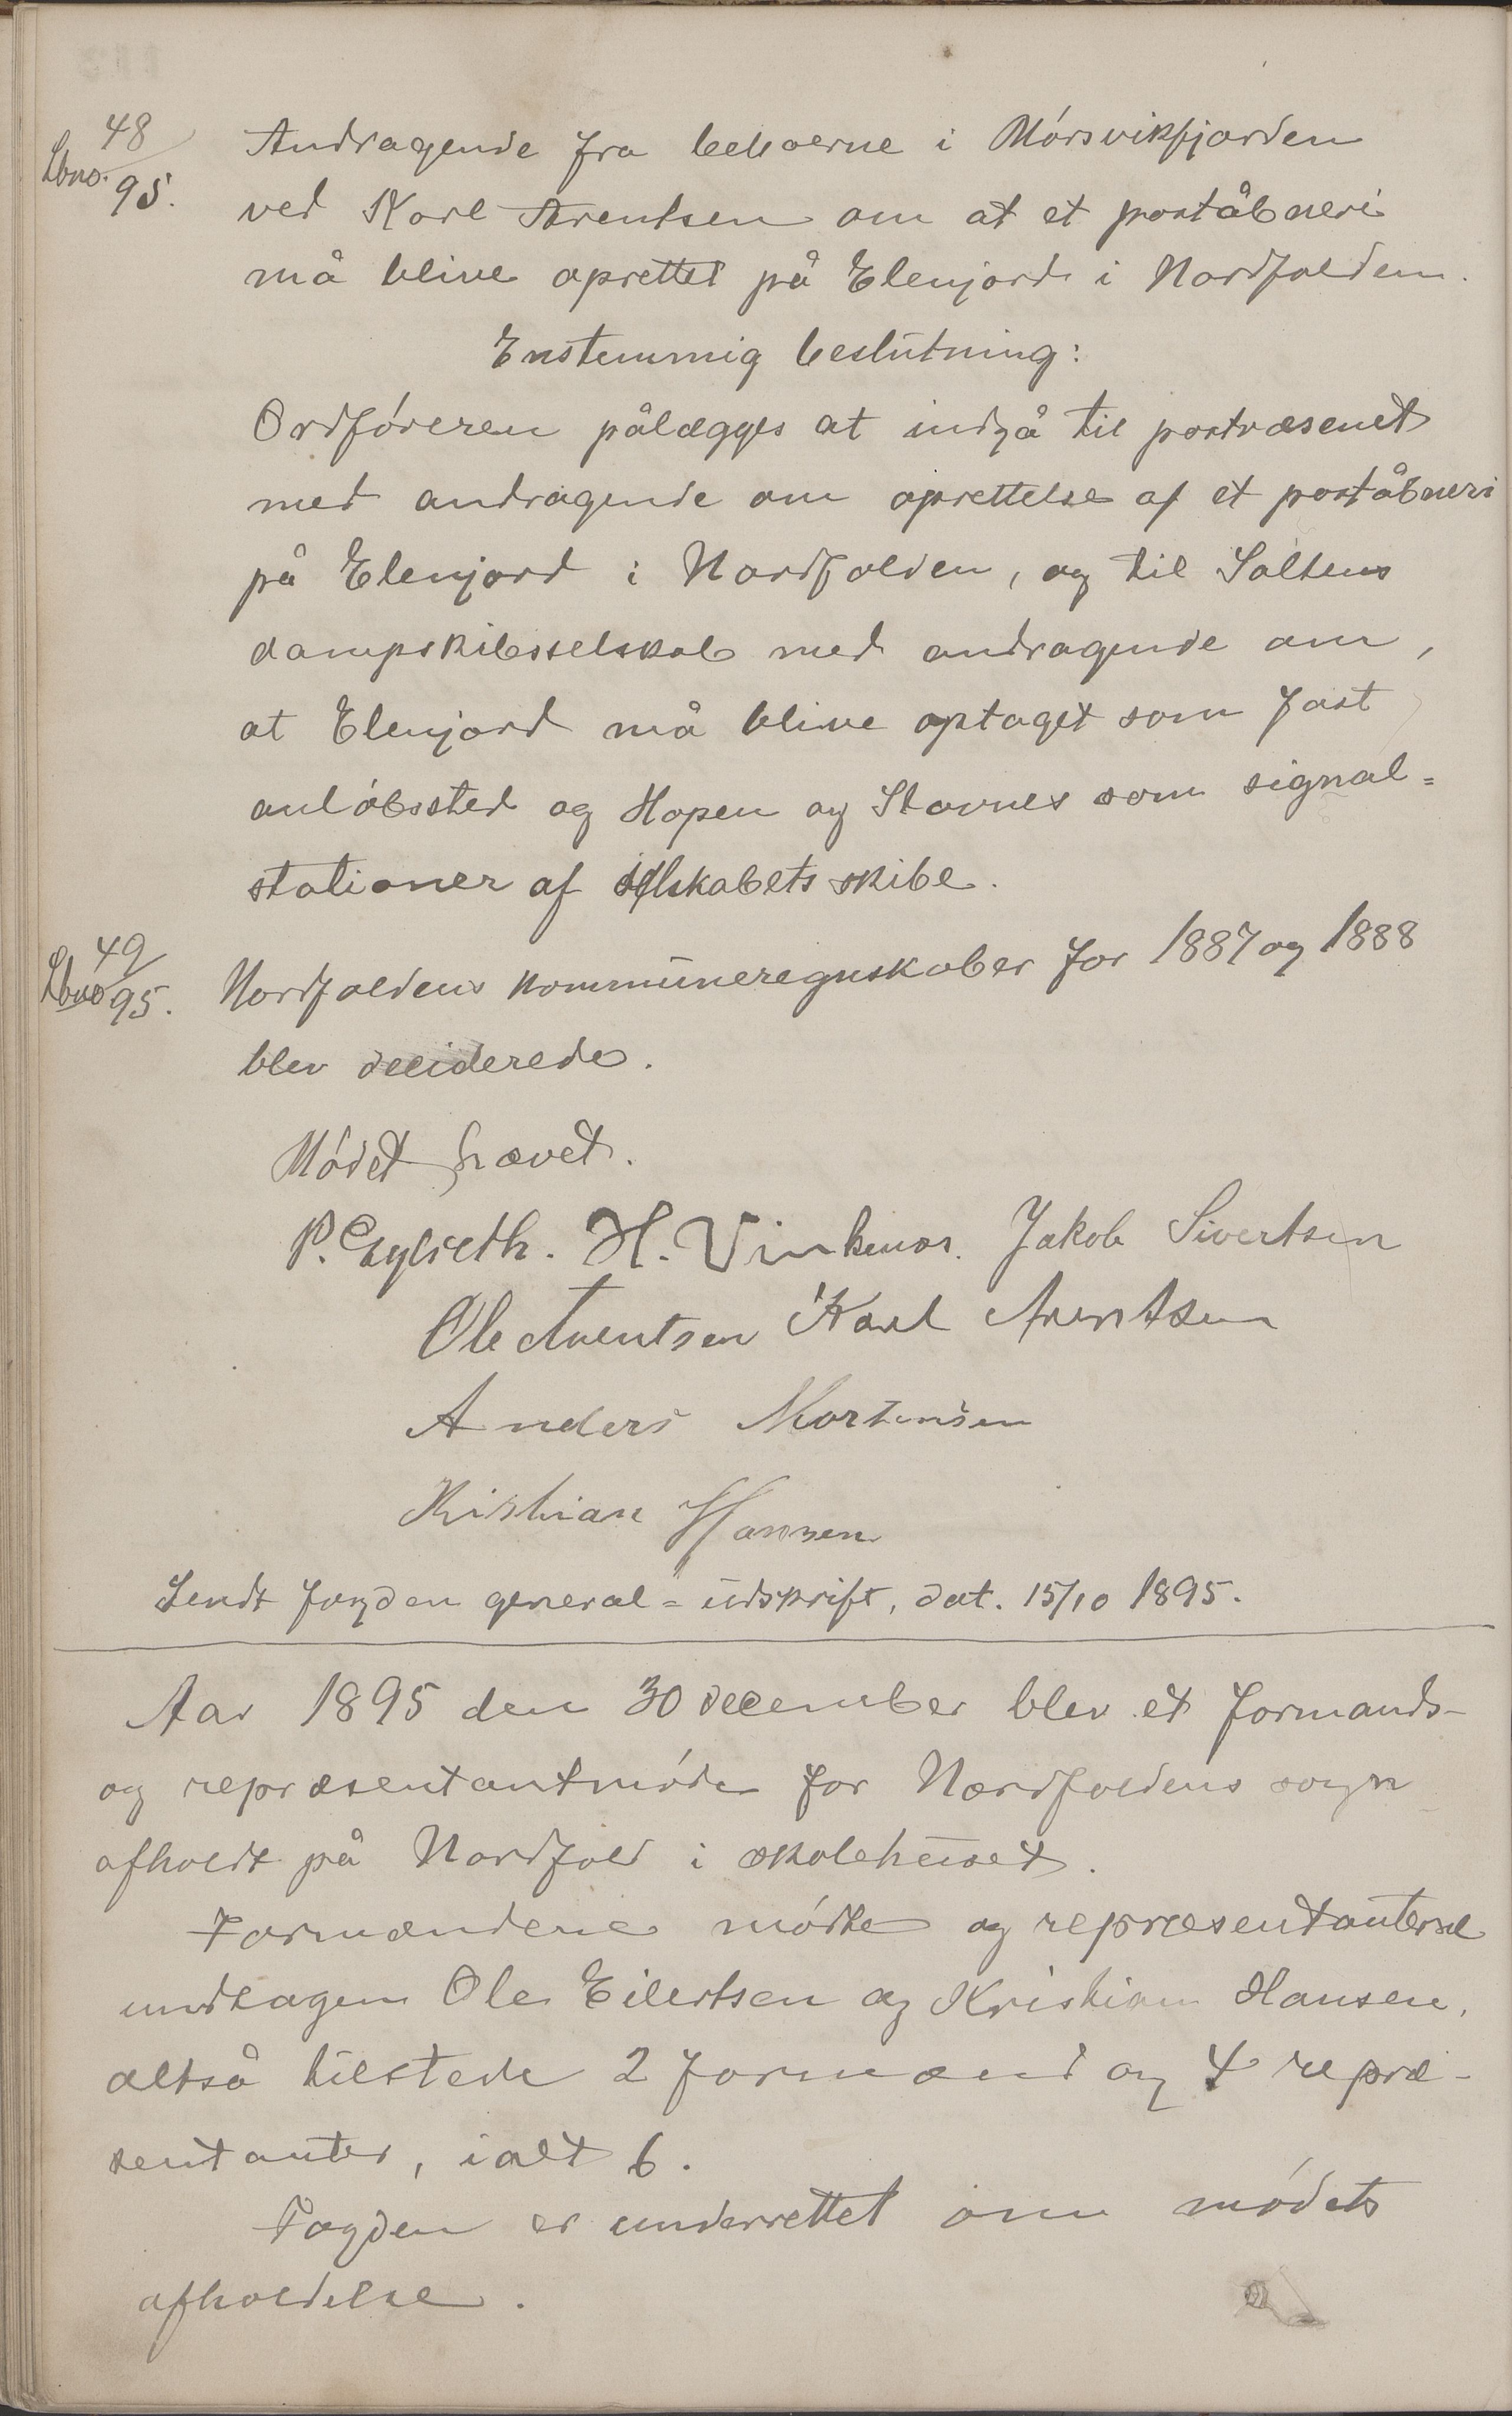 48
Lbno. 95.
Andragende fra beboerne i Mórsvikfjorden
ved Karl Arentsen om at et poståbneri
må blive oprettet på Elenjord i Nordfolden.
Enstemmig beslutning:
Ordfóreren pålægges at indgå til postvæsenet
med andragende om oprettelse af et poståbneri
på Elenjord i Nordfolden, og til Saltens
dampskibsselskab med andragende om,
at Elenjord må blive optaget som fast
anlóbssted og Hopen og Stavnes som signal=
stationer af selskabets skibe.
49
Lbno 95.
Nordfoldens kommuneregnskaber for 1887 og 1888
blev deciderede.
Módet hævet.
P. H. Jakob Sivertsen
Ole Arentsen Karl Arentsen
Anders Mortensen
Kristian Hansen
Sendt fogden general=udskrift, dat. 15/10 1895.
Aar 1895 den 30 december blev et formands-
og repræsentantmóde for Nordfoldens sogn
afholdt på Nordfold i skolehuset.
Formændene módte og repræsentanterne
undtagen Ole Eilertsen og Kristian Hansen,
altså tilstede 2 formænd og 4 repræ-
sentanter, ialt 6.
Fogden er underrettet om módets
afholdelse.